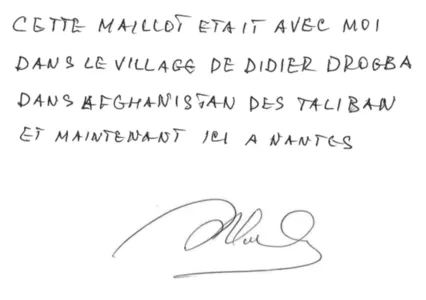 CETTE MAILLOT ETAIT AVEC MOI
DANS LE VILLAGE DE DIDIER DROGBA
DANS AFGHANISTAN DES TALIBAN
ET MAINTENANT ICI A NANTES